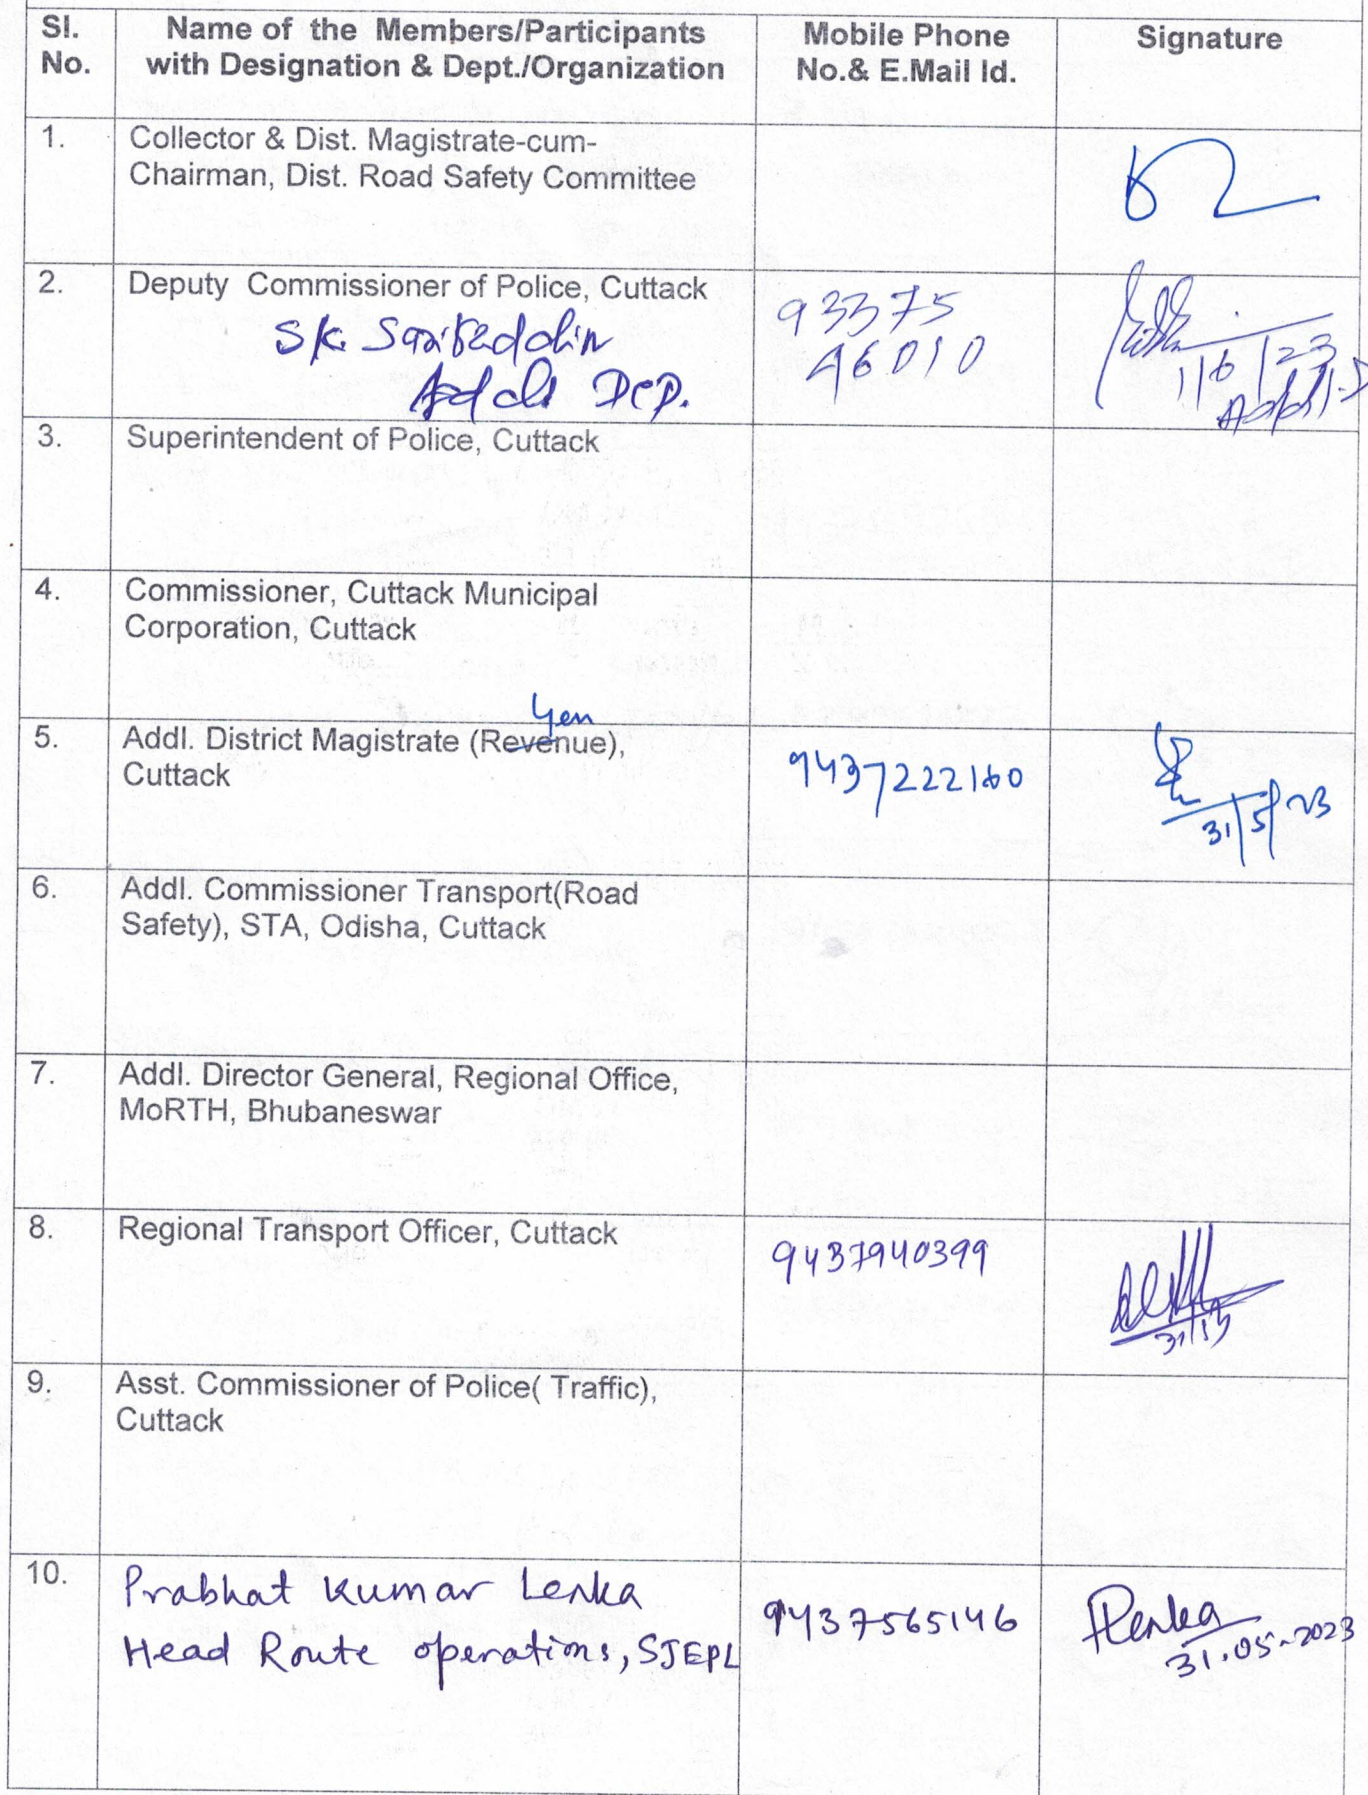 Sl. No.
Name of the Members/Participants with Designation & Dept./Organization
Mobile Phone No.& E.Mail Id.
Signature
1.
Collector & Dist. Magistrate-cum-
Chairman, Dist. Road Safety Committee
2.
Deputy Commissioner of Police, Cuttack
Sk.
Addl DCP.
93375
46010
1/6/23
Addl.D
3.
Superintendent of Police, Cuttack
4.
Commissioner, Cuttack Municipal
Corporation, Cuttack
Gen
5.
Addl. District Magistrate (Revenue),
Cuttack
9437222160
31/5/23
6.
Addl. Commissioner Transport(Road
Safety), STA, Odisha, Cuttack
7.
Addl. Director General, Regional Office,
MoRTH, Bhubaneswar
8.
Regional Transport Officer, Cuttack
9437940399
9.
Asst. Commissioner of Police( Traffic),
Cuttack
10.
Prabhat Kumar Lenka
Head Route operations, SJEPL
9437565146
PLenka
31.05.2023